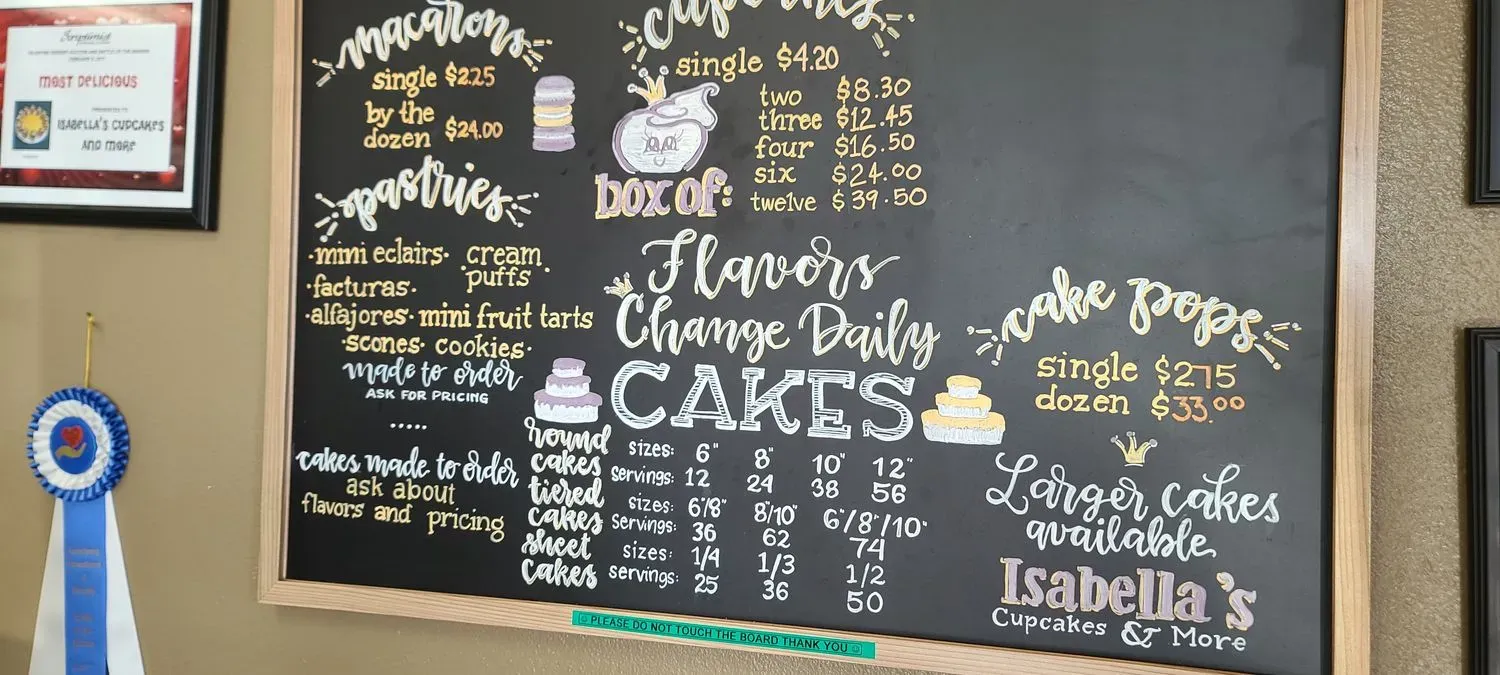 Soroptimist
MOST DELICIOUS
PRESENTED TO
ISABELLA'S CUPCAKES
AND MORE
macarons
single $2.25
by the
dozen $24.00
pastries
·mini eclairs· cream
puffs·
·facturas·
·alfajores· mini fruit tarts
·scones· cookies·
made to order
ASK FOR PRICING
.....
cakes made to order
ask about
flavors and pricing
cupcakes
single $4.20
box of:
two $8.30
three $12.45
four $16.50
six $24.00
twelve $39.50
Flavors
Change Daily
CAKES
round
cakes
sizes: 6" 8" 10" 12"
servings: 12 24 38 56
tiered
cakes
sizes: 6"/8" 8/10" 6"/8"/10"
servings: 36 62 74
sheet
cakes
sizes: 1/4 1/3 1/2
servings: 25 36 50
cake pops
single $2.75
dozen $33.00
Larger cakes
available
Isabella's
Cupcakes & More
☺PLEASE DO NOT TOUCH THE BOARD THANK YOU☺